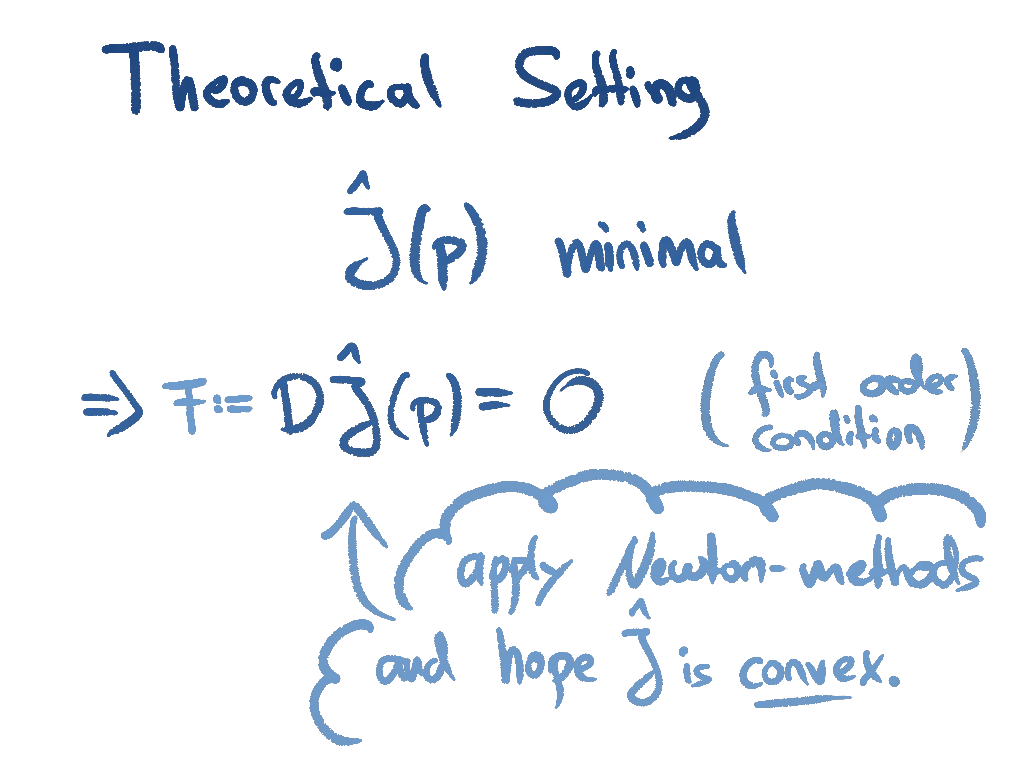 Theoretical Setting
Ĵ(p) minimal
⇒ F := DĴ(p) = 0 (first order condition)
apply Newton-methods
and hope Ĵ is convex.